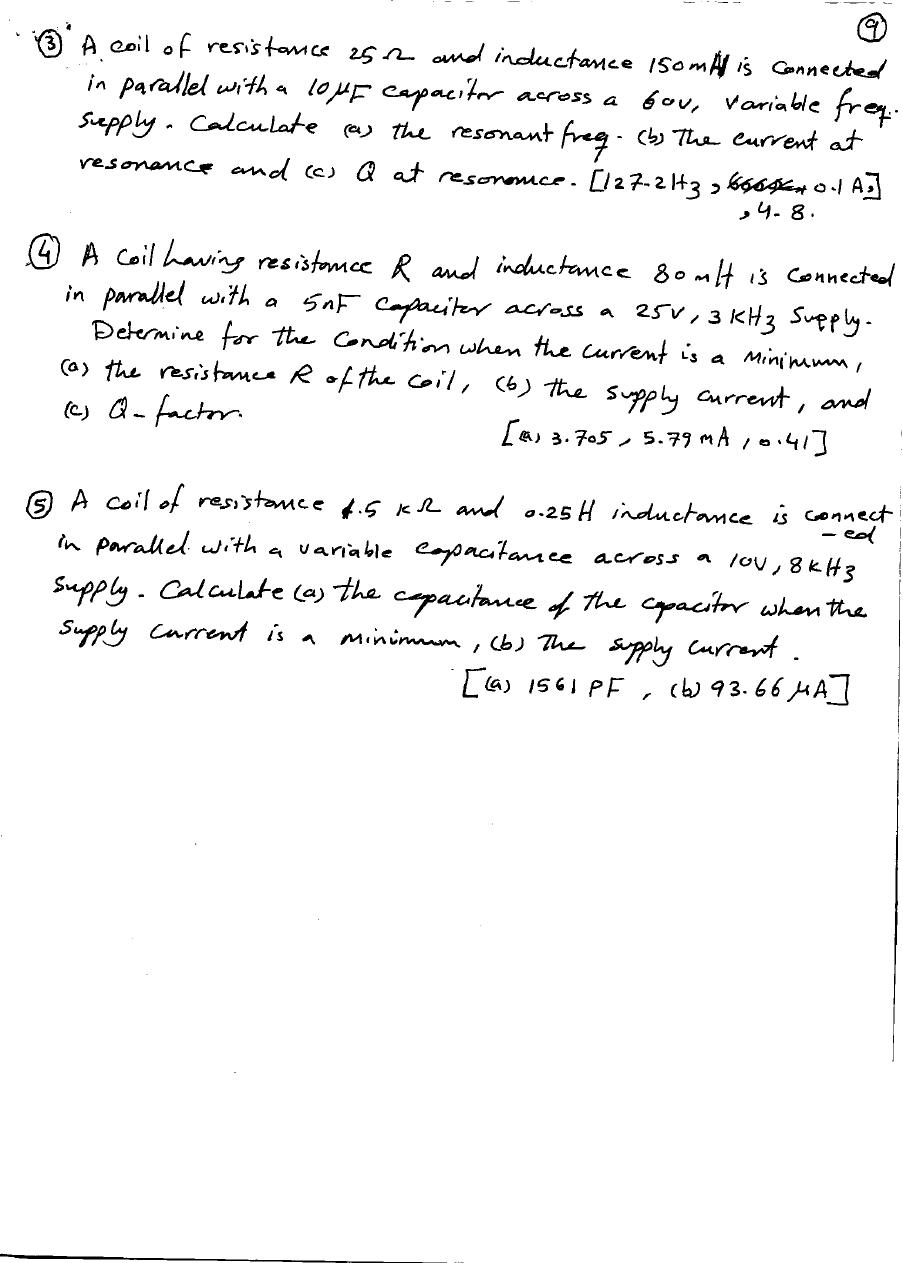 ⑨
③ A coil of resistance 25 Ω and inductance 150mH is connected
in parallel with a 10μF capacitor across a 60V, variable freq.
supply. Calculate (a) the resonant freq. (b) The current at
resonance and (c) Q at resonance. [127.2Hz, 0.1 A,]
, 4.8.
④ A coil having resistance R and inductance 80mH is connected
in parallel with a 5nF capacitor across a 25V, 3 KHz supply.
Determine for the condition when the current is a minimum,
(a) the resistance R of the coil, (b) the supply current, and
(c) Q-factor.
[(a) 3.705, 5.79 mA, 0.41]
⑤ A coil of resistance 1.5 KΩ and 0.25H inductance is connect
-ed
in parallel with a variable capacitance across a 10V, 8KHz
supply. Calculate (a) the capacitance of the capacitor when the
supply current is a minimum, (b) The supply current.
[(a) 1561 PF, (b) 93.66 μA]